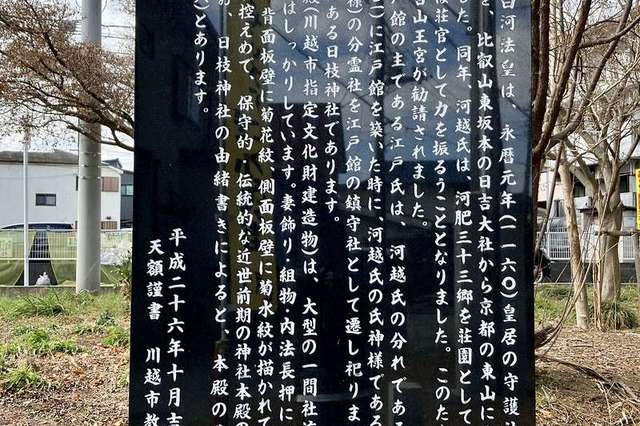 白河法皇は、永暦元年(一一六〇)皇居の守護
を、比叡山東坂本の日吉大社から京都の東山に
た。同年、河越氏は、河肥三十三郷を荘園として
荘官として力を振るうこととなりました。このた
山王宮が勧請されました。
戸館の主である江戸氏は、河越氏の分れである
に江戸館を築いた時に、河越氏の氏神様である
様の分霊社を江戸館の鎮守社として遷し祀りま
ある日枝神社であります。
殿(川越市指定文化財建造物)は、大型の一間社流
はしっかりしています。妻飾り、組物・内法長押に
背面板壁に菊花紋、側面板壁に菊水紋が描かれて
控えめで、保守的・伝統的な近世前期の神社本殿の
、日枝神社の由緒書きによると、本殿の
)とあります。
平成二十六年十月吉
天額謹書 川越市教